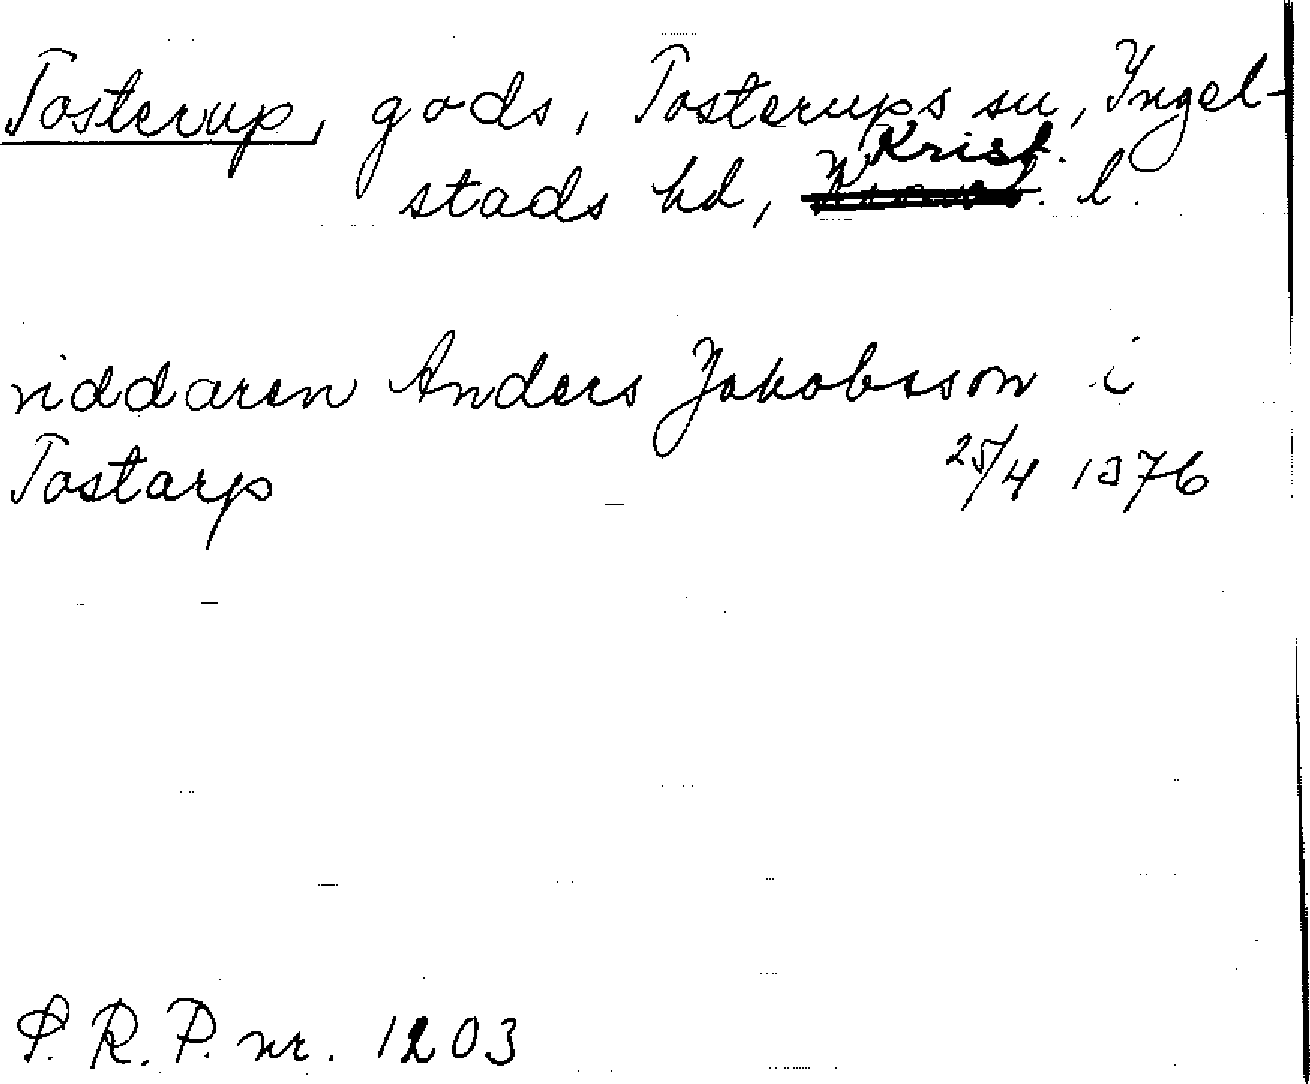 Tosterup, gods, Tosterups sn, Ingel-
stads hd, Krist. l.
riddaren Anders Jakobsson i
Tostarp 25/4 1376
S. R. P. nr. 1203